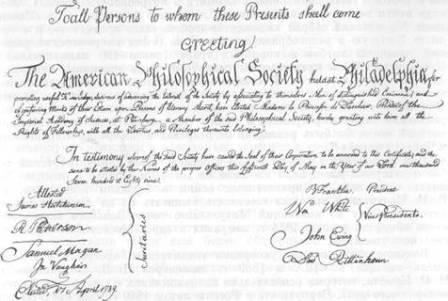 To all Persons to whom these Presents shall come
Greeting
The American Philosophical Society held at Philadelphia for
promoting useful Knowledge, desirous of advancing the Interest of the Society by associating to themselves Men of distinguished Eminence, and
of conferring Marks of their Esteem upon Persons of literary Merit, have Elected Madame la Princesse de Daschkaw, President of the
Imperial Academy of Sciences, at Petersburg, a Member of the said Philosophical Society, hereby granting unto her all the
Rights of Fellowship, with all the Liberties and Privileges thereunto belonging.
In testimony whereof the said Society have caused the Seal of their Corporation to be annexed to this Certificate, and the
same to be attested by the Names of the proper Officers this fifteenth Day of May in the Year of our Lord one thousand
Seven hundred & Eighty nine.
Attested
James Hutchinson
R. Patterson
Samuel Magaw
Jn. Vaughan
Secretaries
B Franklin President
Wm White
John Ewing
Davd. Rittenhouse
Vice Presidents
Elected, 17 April 1789